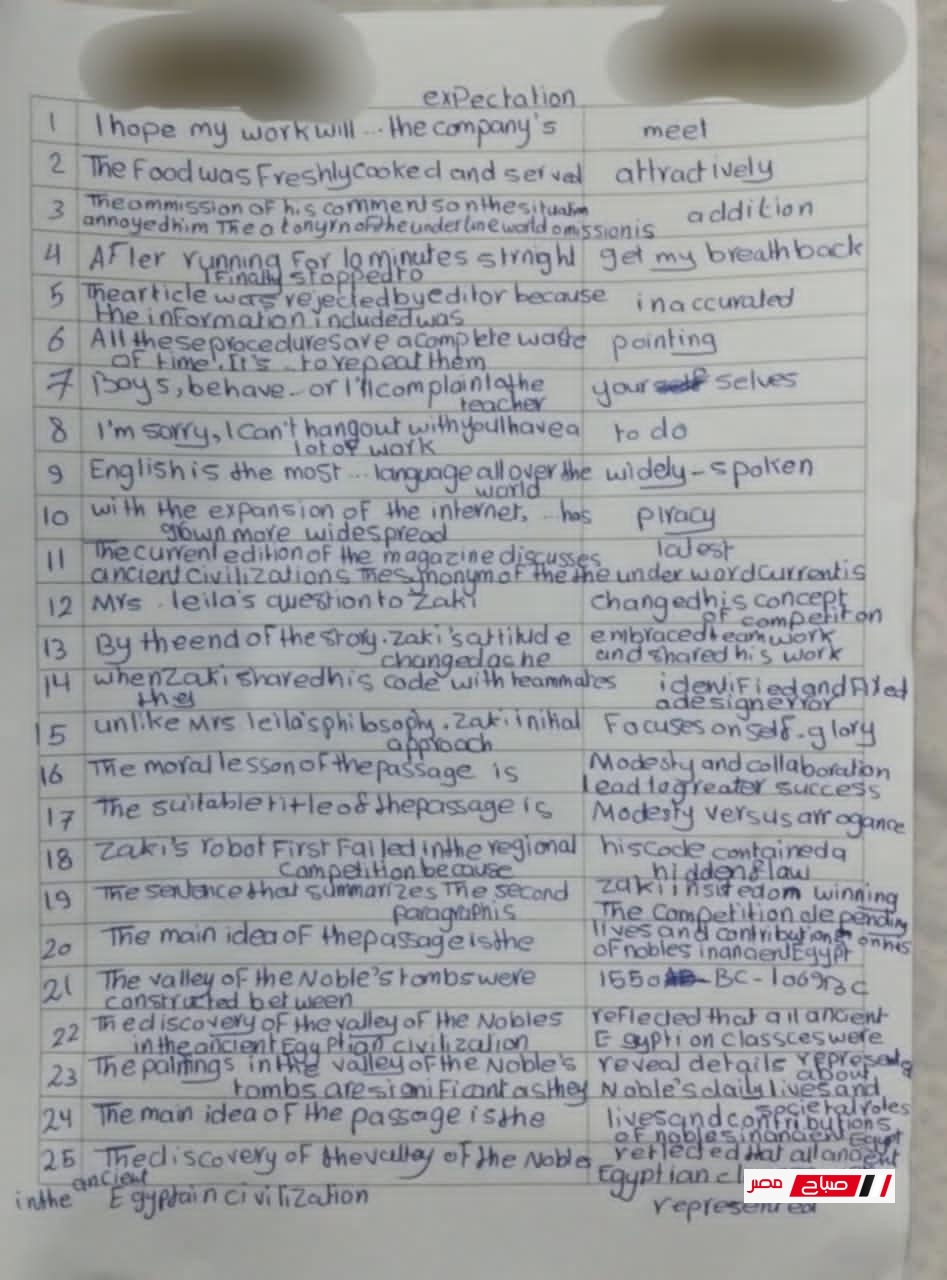 expectation
1 I hope my work will ... the company's meet
2 The Food was Freshly cooked and served attractively
3 The ommission of his comments on the situation addition
annoyed him The atonyrn of the underline world omission is
4 AFler running For 10 minutes strnight get my breath back
I Finally stopped to
5 The article was rejected by editor because inaccurated
the inFormation included was
6 All these procedures are a complete waste pointing
of time! It's .. to repeat them
7 Boys, behave .. or I'll complain to the your selves
teacher
8 I'm sorry, I can't hang out with you I have a to do
lot of work
9 English is the most ... language all over the widely-spoken
world
10 with the expansion of the internet, ... has piracy
grown more widespread
11 The current edition of the magazine discusses latest
ancient civilizations The synonym of the the under word current is
12 Mrs . leila's question to Zaki changed his concept
of competiton
13 By the end of the story. Zaki's attitude embraced teamwork
changed as he and shared his work
14 when Zaki shared his code with teammates identiFied and Fixed
they a design error
15 unlike Mrs leila's philosophy. Zaki initial Focuses on self-glory
approach
16 The moral lesson of the passage is Modesty and collaboration
lead to greater success
17 The suitable title of the passage is Modesty versus arrogance
18 Zaki's robot First Failed in the regional his code contained a
Competition because hidden flaw
19 The sentence that summarizes The second Zaki insisted om winning
paragraph is The Competition depending
on his
20 The main idea of the passage is the lives and contributions
of nobles in ancient Egypt
21 The valley of the Noble's tombs were 1550 BC - 1069 BC
constructed between
22 The discovery of the valley of the Nobles reflected that all ancient
in the ancient Egyptian civilization Egyption classces were
represented
23 The paintings in the valley of the Noble's reveal details about
tombs are signiFicant as they Noble's daily lives and
societal roles
24 The main idea of the passage is the lives and contributions
of nobles in ancient Egypt
25 The discovery of the valley of the Nobles reflected that all ancient
in the ancient Egyptain civilization Egyptian
represented
صباح مصر